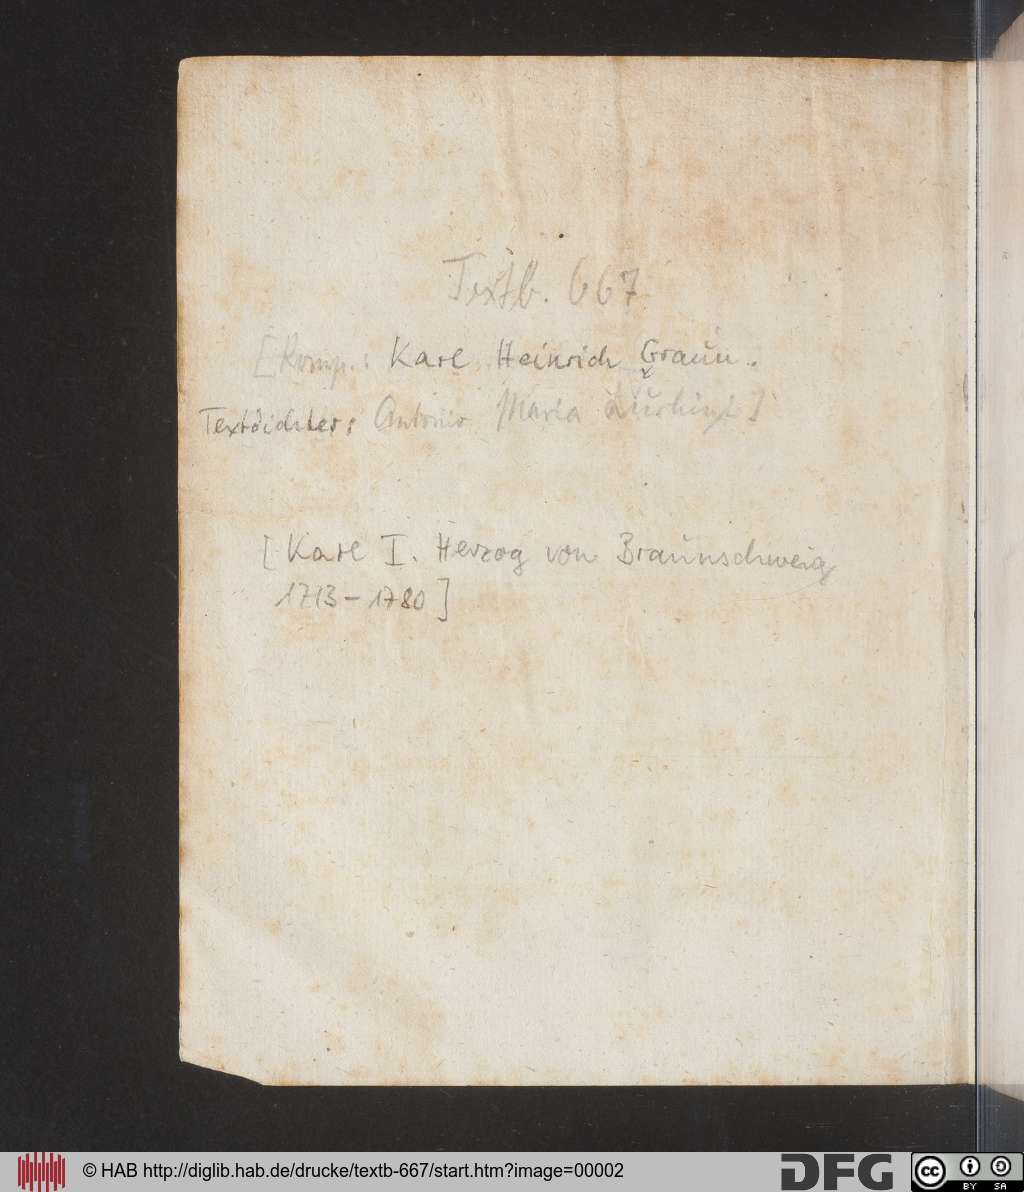 Textb. 667
[Komp.: Karl Heinrich Graun.
Textdichter: Antonio Maria Luchini]
[Karl I. Herzog von Braunschweig
1713-1780]
© HAB http://diglib.hab.de/drucke/textb-667/start.htm?image=00002
DFG
cc BY SA